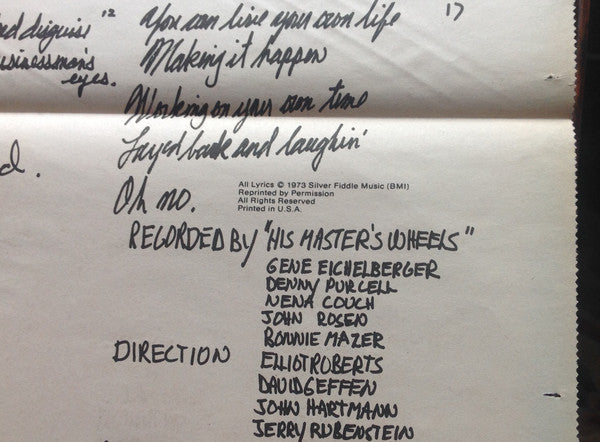 ed disguise
businessmen's
eyes.
d.
12
You can live your own life
17
Making it happen
Working on your own time
Layed back and laughin'
Oh no.
All Lyrics © 1973 Silver Fiddle Music (BMI)
Reprinted by Permission
All Rights Reserved
Printed in U.S.A.
RECORDED BY "HIS MASTER'S WHEELS"
GENE EICHELBERGER
DENNY PURCELL
NENA COUCH
JOHN ROSEN
BONNIE MAZER
DIRECTION ELLIOT ROBERTS
DAVID GEFFEN
JOHN HARTMANN
JERRY RUBENSTEIN